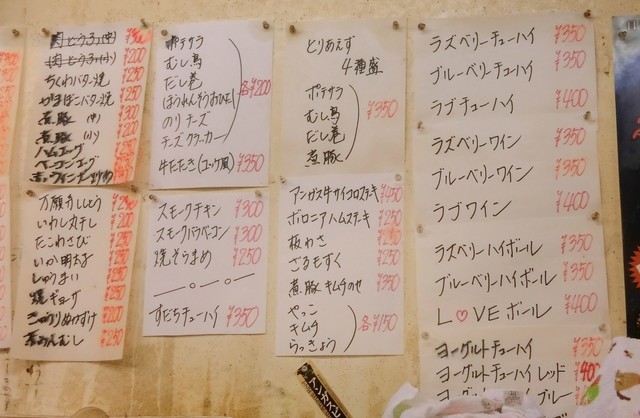 ちくわバター焼 ¥250
かまぼこバター焼 ¥250
煮豚 (中) ¥300
煮豚 (小) ¥200
ハムエッグ ¥250
ベーコンエッグ ¥250
万願寺ししとう
いわし丸干し ¥200
たこわさび ¥250
いか明太子 ¥250
しゅうまい ¥250
焼ギョーザ ¥250
きゅうりぬか漬け ¥200
¥250
ポテサラ
むし鳥
だし巻
ほうれんそうおひたし
のりチーズ
チーズクラッカー
各¥200
牛たたき(ユッケ風) ¥350
スモークチキン ¥300
スモークパウベーコン ¥300
焼そらまめ ¥250
すだちチューハイ ¥350
とりあえず
4種盛
ポテサラ
むし鳥
だし巻
煮豚
¥350
アンガス牛サイコロステーキ ¥450
ボロニアハムステーキ ¥250
板わさ ¥250
ざるもずく ¥250
煮豚キムチのせ ¥350
やっこ
キムチ
らっきょう
各¥150
ラズベリーチューハイ ¥350
ブルーベリーチューハイ ¥350
ラブチューハイ ¥400
ラズベリーワイン ¥350
ブルーベリーワイン ¥350
ラブワイン ¥400
ラズベリーハイボール ¥350
ブルーベリーハイボール ¥350
L♡VEボール ¥400
ヨーグルトチューハイ ¥350
ヨーグルトチューハイ レッド ¥400
ブルー